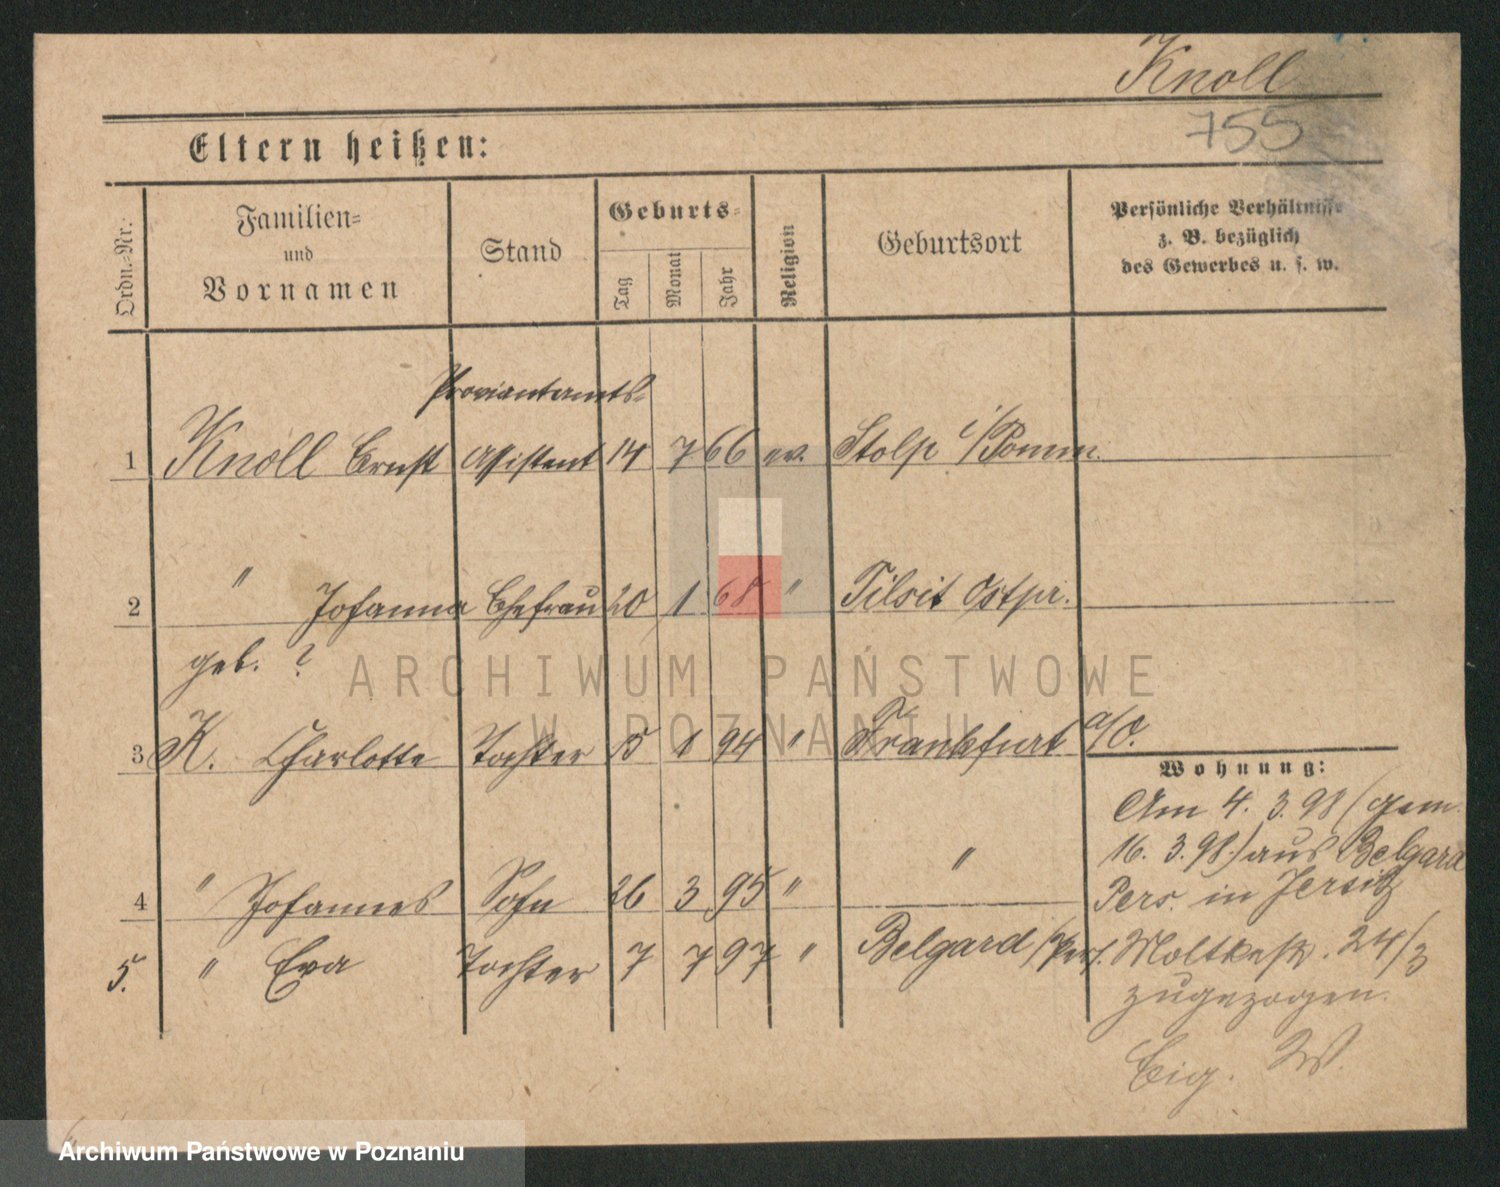 Knoll
755
Eltern heißen:
Ordn.-Nr.
Familien-
und
Vornamen
Stand
Geburts-
Tag
Monat
Jahr
Religion
Geburtsort
Persönliche Verhältnisse
z. B. bezüglich
des Gewerbes u. s. w.
Proviantamts-
1 Knoll Ernst Assistent 14 7 66 ev. Stolp i/Pomm.
2 " Johanna Ehefrau 20 1 68 " Tilsit Ostpr.
geb. ?
ARCHIWUM PAŃSTWOWE
W POZNANIU
3 K. Charlotte Tochter 15 1 94 " Frankfurt a/O.
4 " Johannes Sohn 26 3 95 " "
5. " Eva Tochter 7 7 97 " Belgard /Pers.
Wohnung:
Am 4. 3. 98 (gem.
16. 3. 98.) aus Belgard
Pers. in Jersitz
Moltkestr. 24/3
zugezogen.
Eig. W.
Archiwum Państwowe w Poznaniu